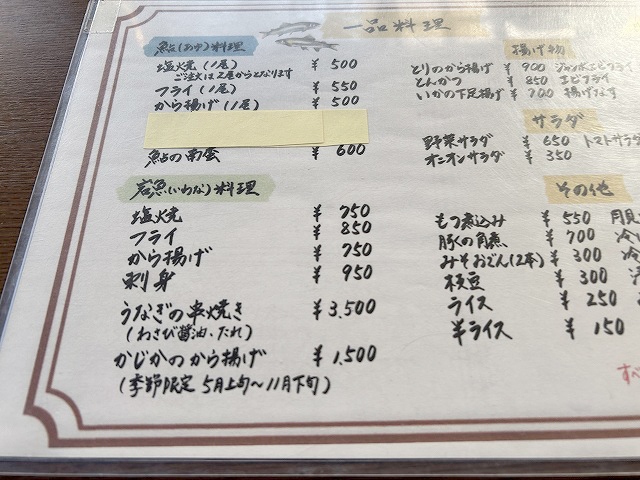 一品料理
鮎(あゆ)料理
塩焼(1尾) ¥500
ご注文は2尾からとなります
フライ(1尾) ¥550
から揚げ(1尾) ¥500
鮎の南蛮 ¥600
岩魚(いわな)料理
塩焼 ¥750
フライ ¥850
から揚げ ¥750
刺身 ¥950
うなぎの串焼き ¥3,500
(わさび醤油、たれ)
かじかのから揚げ ¥1,500
(季節限定 5月上旬〜11月下旬)
揚げ物
とりのから揚げ ¥900 ジャンボエビフライ
とんかつ ¥850 エビフライ
いかの下足揚げ ¥700 揚げなす
サラダ
野菜サラダ ¥650 トマトサラダ
オニオンサラダ ¥350
その他
もつ煮込み ¥550 月見
豚の角煮 ¥700 冷
みそおでん(2本) ¥300 冷
枝豆 ¥300
ライス ¥250
半ライス ¥150
すべ